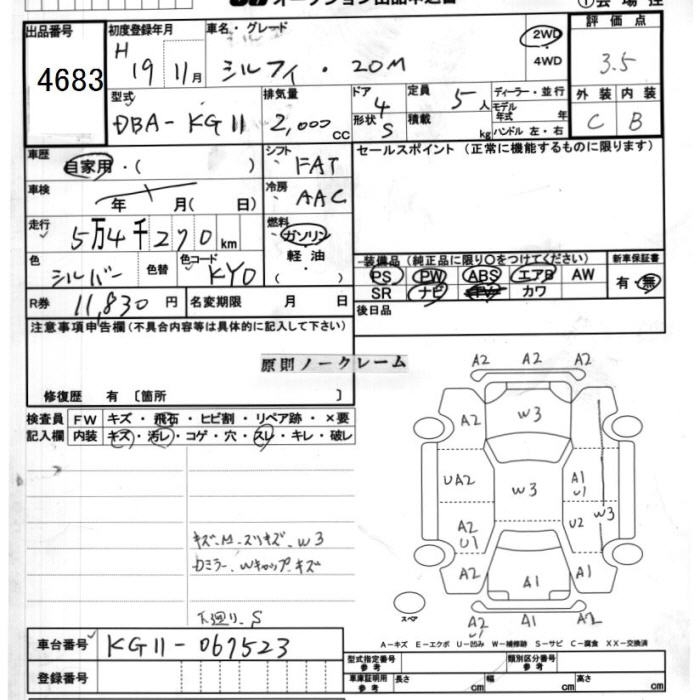 オークション出品申込書
①会場控
出品番号
4683
初度登録年月
H 19 11月
車名・グレード
シルフィ・20M
2WD
4WD
評価点
3.5
外装 内装
C B
型式
DBA-KG11
排気量
2,000 cc
ドア 4
形状 S
定員 5人
積載 kg
ディーラー・並行
モデル年式 年
ハンドル 左・右
車歴
自家用・( )
シフト
FAT
セールスポイント (正常に機能するものに限ります)
車検
年 月( 日)
冷房
AAC
走行
5万4千270km
燃料
ガソリン
軽油
( )
色
シルバー
色替
色コード
KY0
装備品 (純正品に限り○をつけてください)
PS PW ABS エアB AW
SR ナビ TV カワ
新車保証書
有・無
R券 11,830円
名変期限 月 日
後日品
注意事項申告欄(不具合内容等は具体的に記入して下さい)
原則ノークレーム
修復歴 有 〔箇所 〕
検査員記入欄
FW キズ・飛石・ヒビ割・リペア跡・×要
内装 キズ・汚レ・コゲ・穴・スレ・キレ・破レ
キズ・M-スリキズ・W3
Dミラー・Wキャップ・キズ
下廻り、S
A2 A2 A2
A2 W3
UA2 W3 A1 U1
A2 U1 U2 W3
A2 A1 A1
A2 U1 A1 A2
スペア
A-キズ E-エクボ U-凹み W-補修跡 S-サビ C-腐食 XX-交換済
車台番号 KG11-067523
登録番号
型式指定番号 参考
類別区分番号 参考
車庫証明用 参考 長さ cm 幅 cm 高さ cm